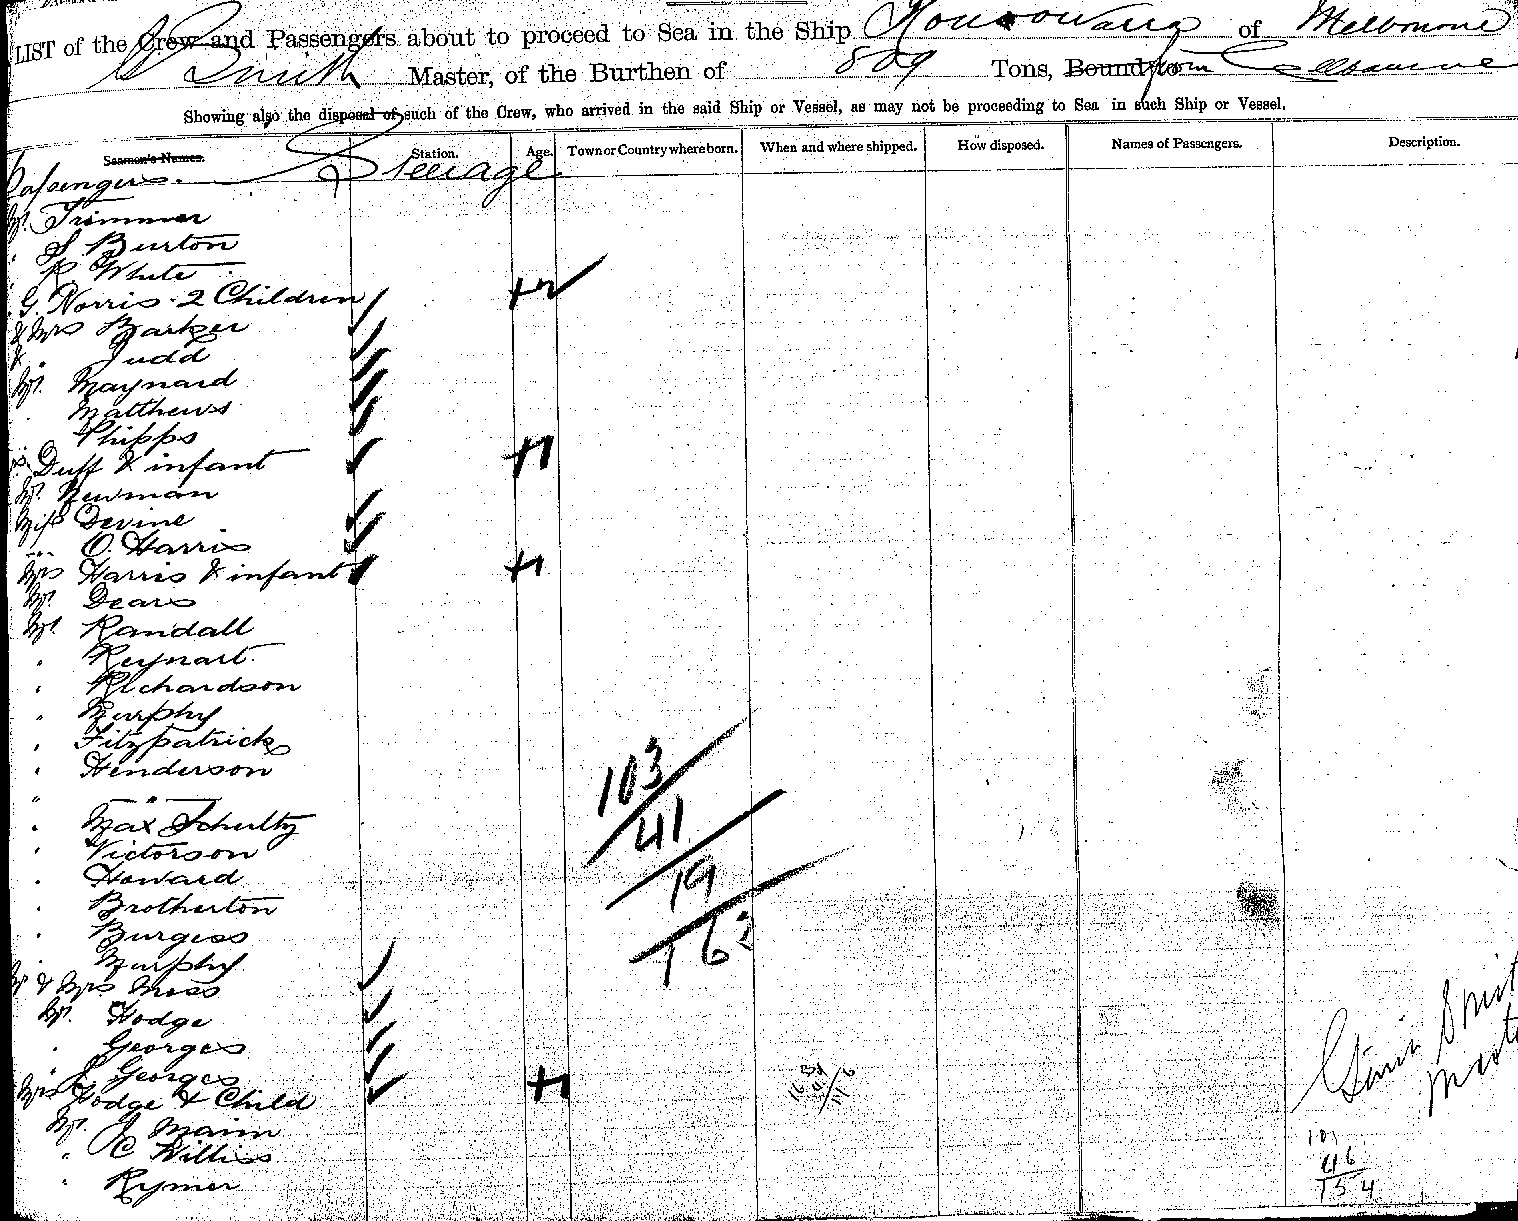 LIST of the Crew and Passengers about to proceed to Sea in the Ship Konoowarra of Melbourne
Smith Master, of the Burthen of 809 Tons, Bound from Melbourne
Showing also the disposal of such of the Crew, who arrived in the said Ship or Vessel, as may not be proceeding to Sea in such Ship or Vessel.
Seamen's Names. Station. Age. Town or Country where born. When and where shipped. How disposed. Names of Passengers. Description.
Passengers. Steerage
Mr. Trimmer
" S. Burton
" R. White
G. Norris - 2 Children +2
& Mrs Barker
& " Judd
Mr. Maynard
" Matthews
Phipps
Duff & infant +1
Mr. Newman
Miss Devine
" O. Harris
Mrs Harris & infant +1
Mr. Dears
Mr. Randall
" Reynart.
" Richardson
" Murphy
" Fitzpatrick
" Henderson
" "
" Max Schultz
" Victorson
" Howard
" Brotherton
" Burgess
" Murphy
Mr & Mrs Moss
Mr. Hodge
" Georges
" J Georges
Mrs Hodge & Child +1
Mr. J Mann
" C Williss
" Rymer
103
41
19
163
Smith
Master
101
46
154